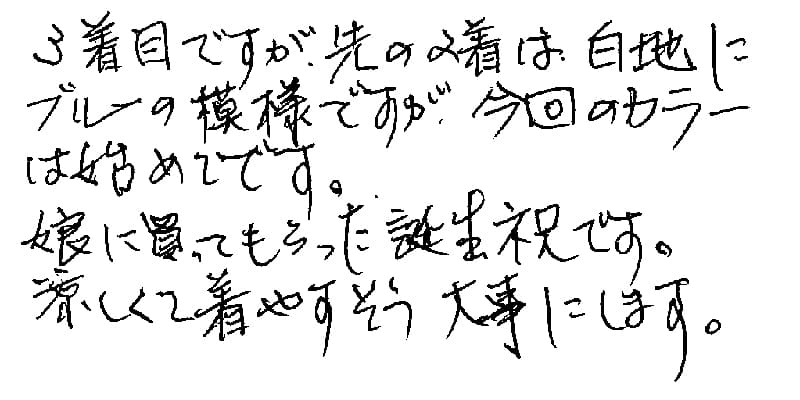 3着目ですが、先の2着は白地に
ブルーの模様ですが、今回のカラー
は始めてです。
娘に買ってもらった誕生祝です。
涼しくて着やすそう大事にします。